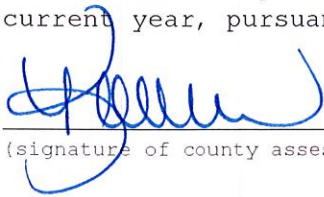 current year, pursuan
(signature of county asses